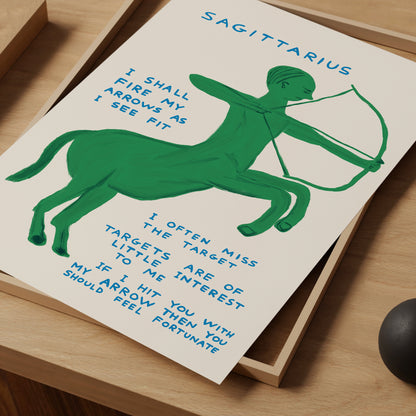 SAGITTARIUS
I SHALL
FIRE MY
ARROWS AS
I SEE FIT
I OFTEN MISS
THE TARGET
TARGETS ARE OF
LITTLE INTEREST
TO ME
IF I HIT YOU WITH
MY ARROW THEN YOU
SHOULD FEEL FORTUNATE